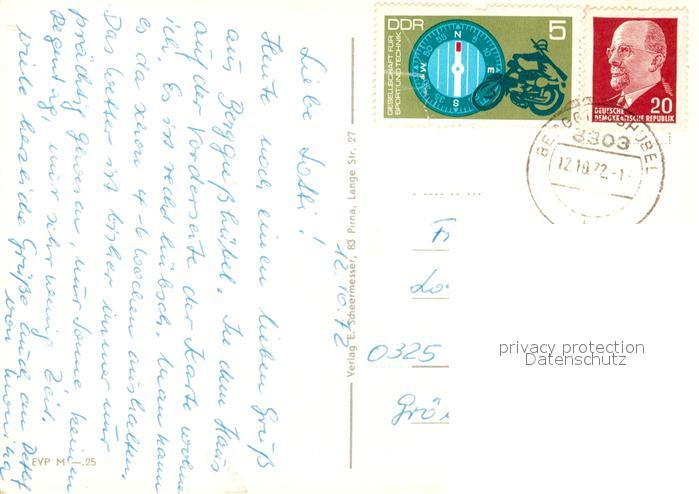 DDR
5
GESELLSCHAFT FÜR
SPORT UND TECHNIK
N
E
S
W
20
DEUTSCHE
DEMOKRATISCHE REPUBLIK
8303
12.10.72.-1
12.10.72
Liebe Lotti!
Heute noch einen lieben Gruß
aus Berggießhübel. In dem Haus
auf der Vorderseite der Karte wohne
ich. Es ist recht hübsch. Man kann
es da schon 4-6 Wochen aushalten.
Das Wetter ist bisher immer nur
prächtig gewesen, nur Sonne keinen
Regentag, nur sehr wenig Zeit.
Viele herzliche Grüße auch an Detlef
von Monika
Verlag E. Scheermesser, 83 Pirna, Lange Str. 27
EVP M —.25
0325
Grö
privacy protection
Datenschutz